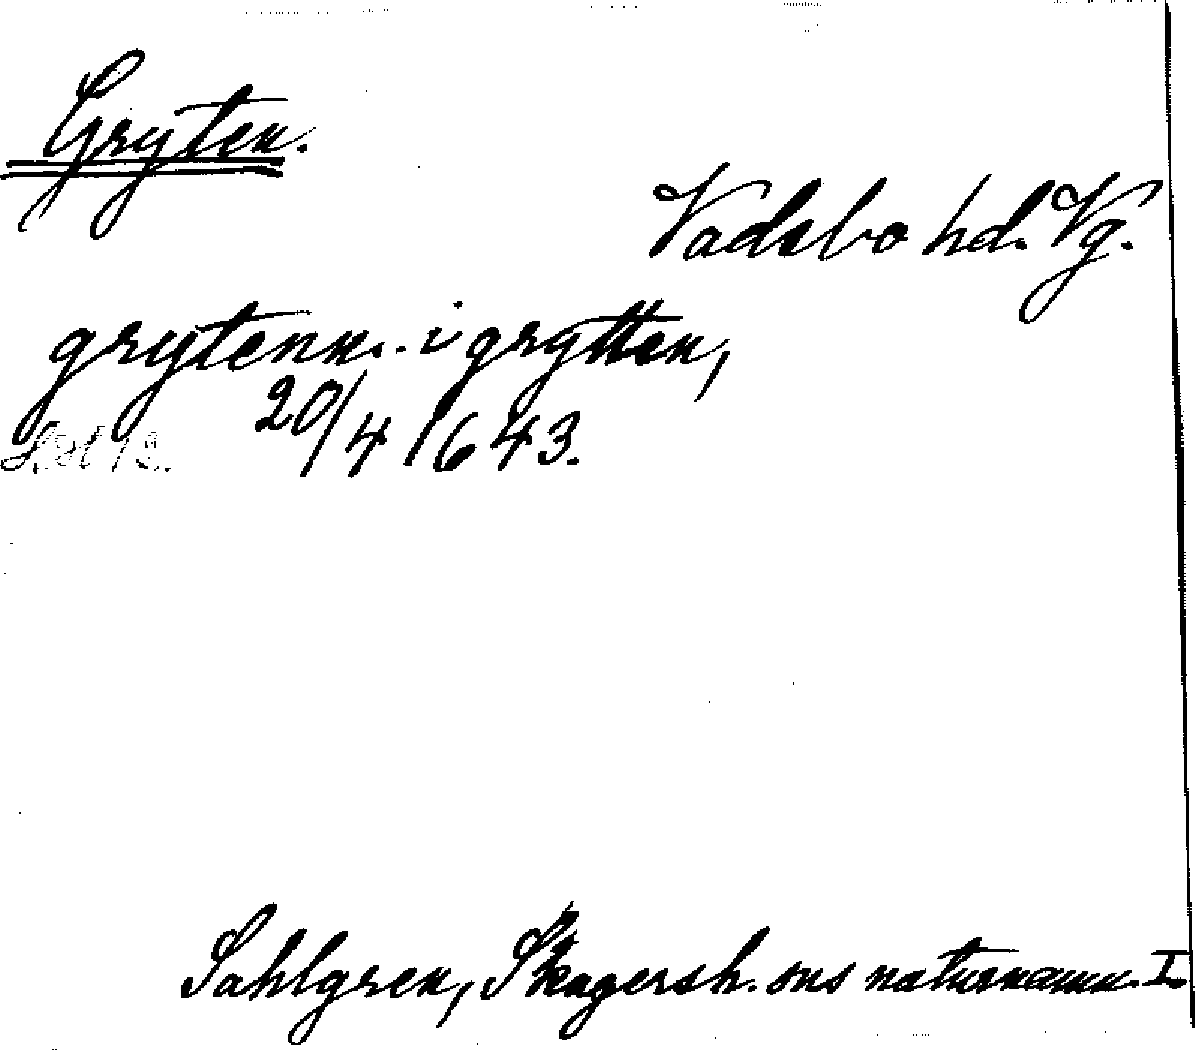 Gryten.
Vadsbo hd. Vg.
grytenn. i grytten,
20/4 1643.
Sahlgren, Skagersh. sns naturnamn. I.